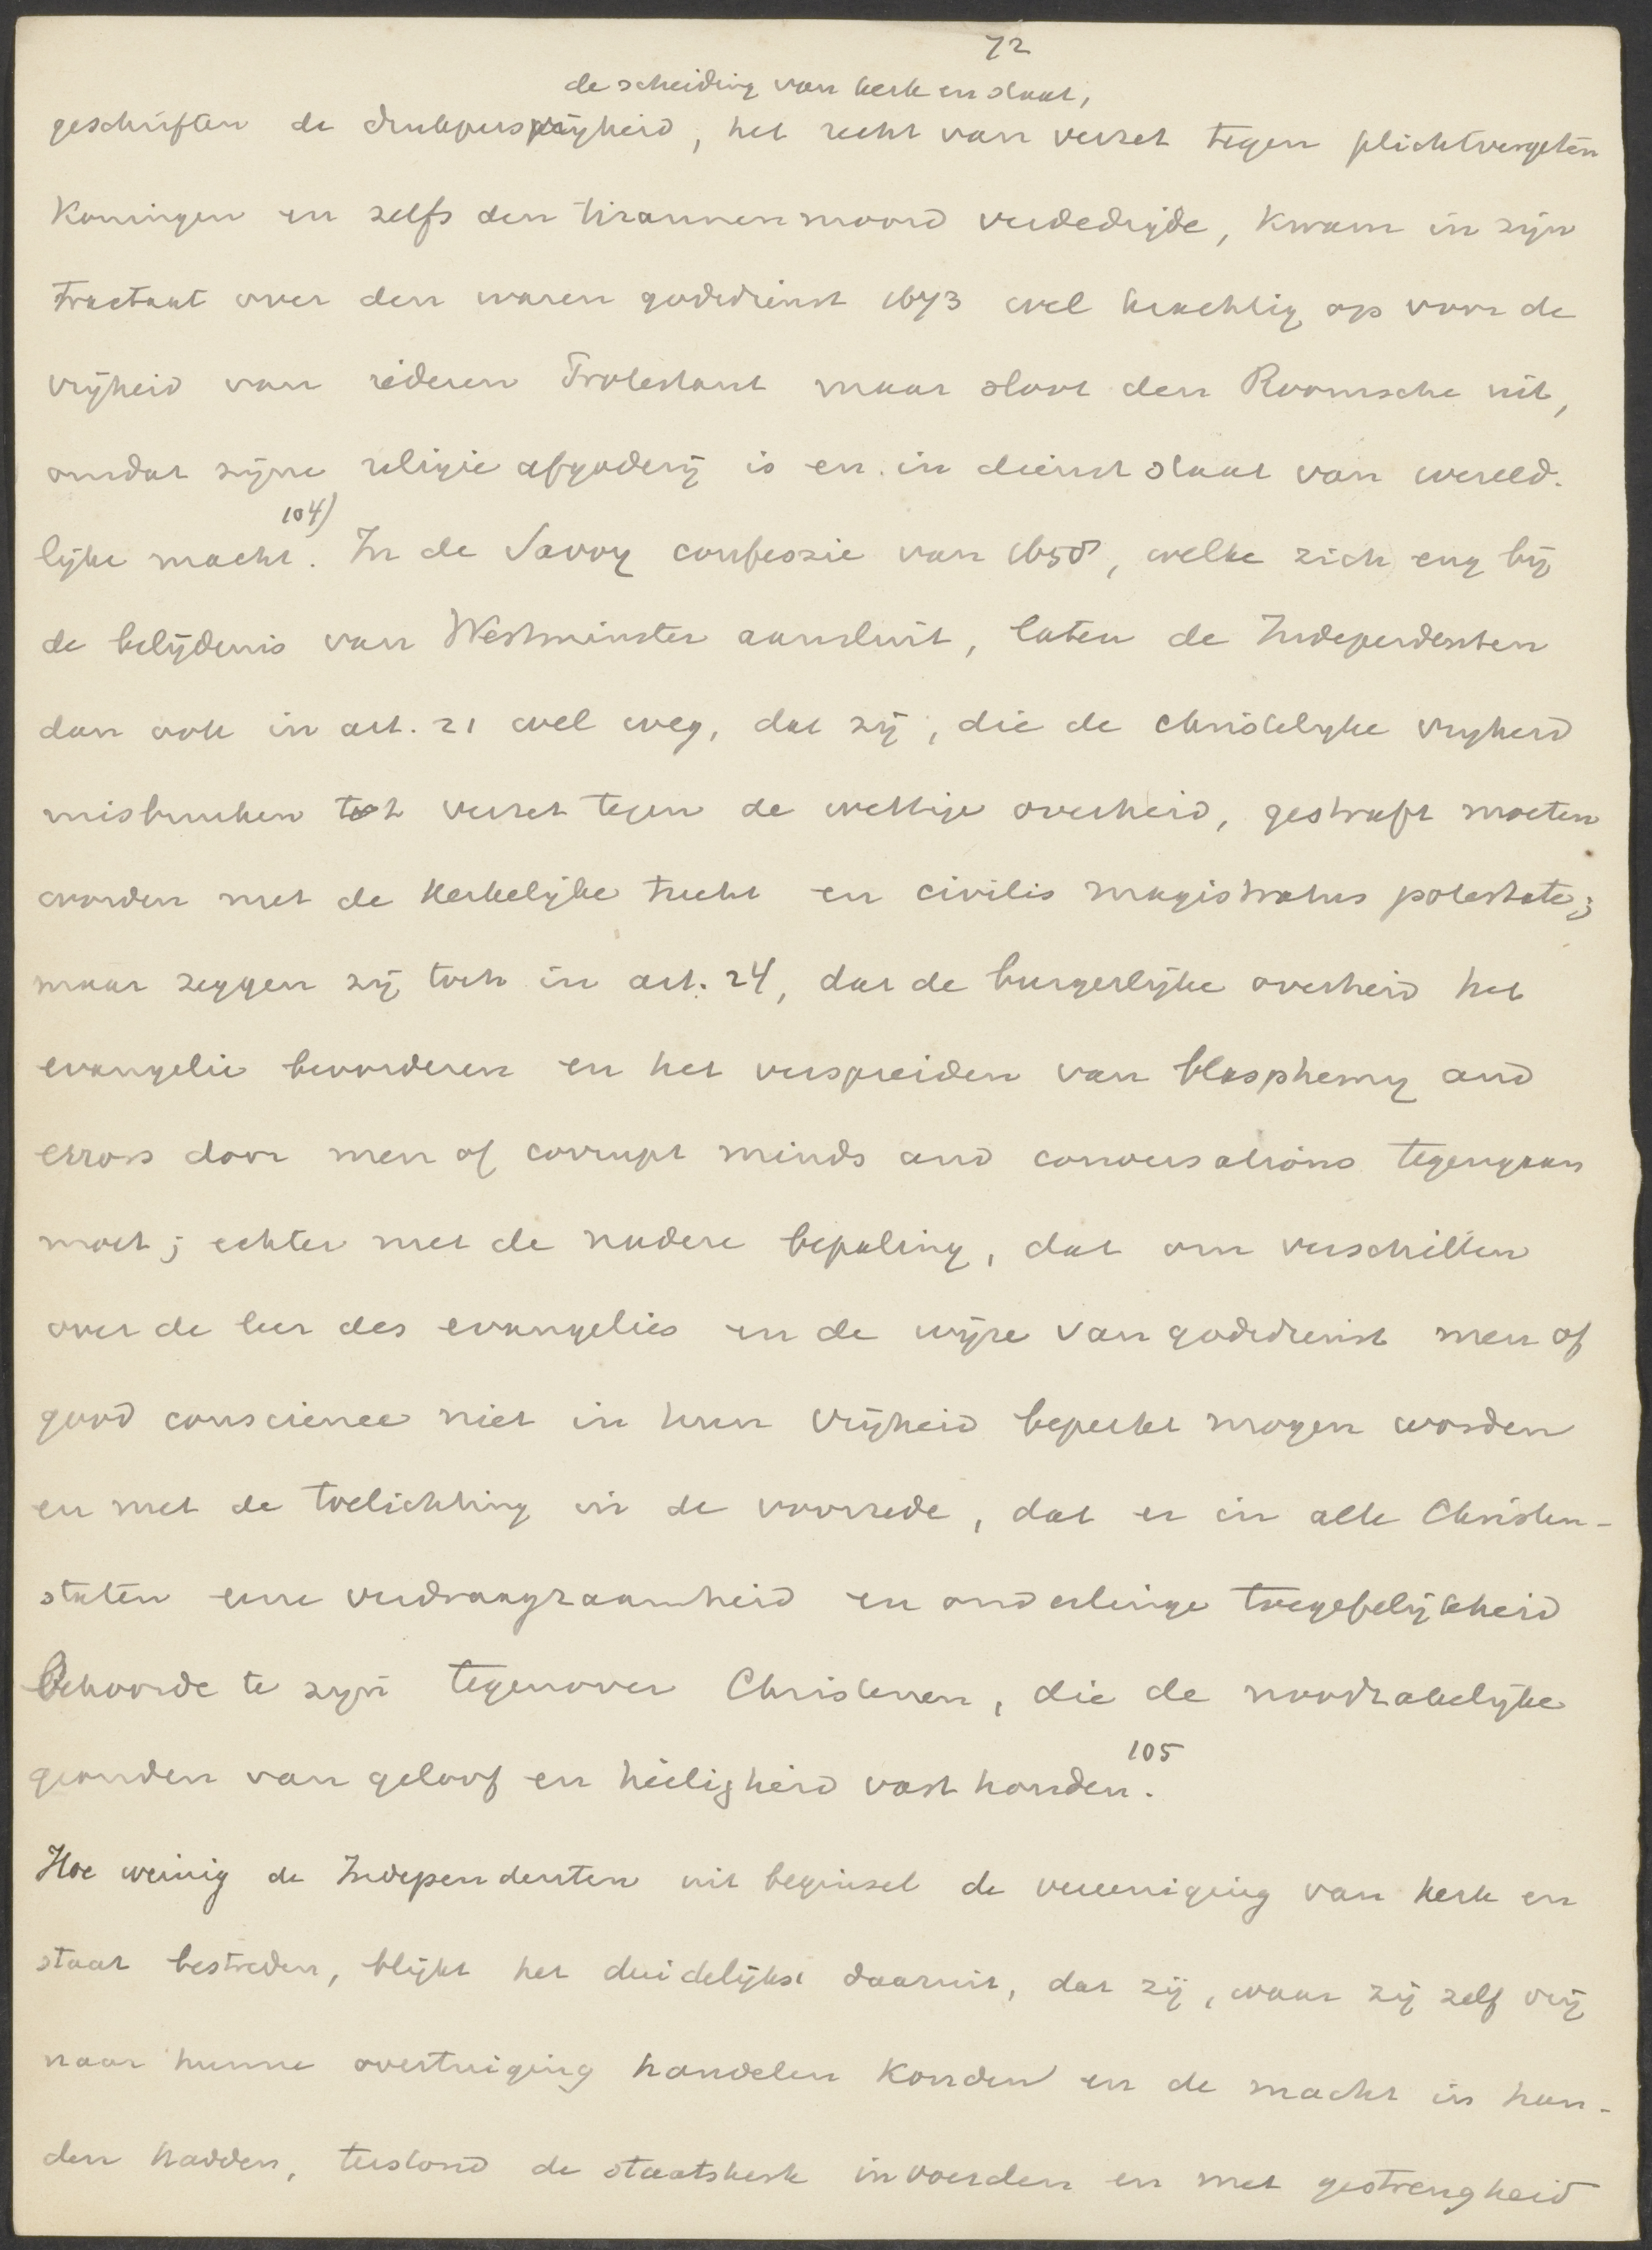 72
de scheiding van kerk en staat,
geschriften de drukpersvrijheid, het recht van verzet tegen plichtvergeten
Koningen en zelfs den tirannenmoord verdedigde, kwam in zijn
Tractaat over den waren godsdienst 1673 wel krachtig op voor de
vrijheid van iederen Protestant maar sloot den Roomsche uit,
omdat zijne religie afgoderij is en in dienst staat van wereld-
lijke macht. 104) In de Savoy confessie van 1658, welke zich eng bij
de belijdenis van Westminster aansluit, laten de Independenten
dan ook in art. 21 wel weg, dat zij, die de christelijke vrijheid
misbruiken tot verzet tegen de wettige overheid, gestraft moeten
worden met de kerkelijke tucht en civilis magistratus potestate;
maar zeggen zij toch in art. 24, dat de burgerlijke overheid het
evangelie bevorderen en het verspreiden van blasphemy and
errors door men of corrupt minds and conversations tegengaan
moet; echter met de nadere bepaling, dat om verschillen
over de leer des evangelies en de wijze van godsdienst men of
good conscience niet in hun vrijheid beperkt mogen worden
en met de toelichting in de voorrede, dat er in alle Christen-
staten eene verdraagzaamheid en onderlinge toegefelijkheid
Behoorde te zijn tegenover Christenen, die de noodzakelijke
gronden van geloof en heiligheid vast houden. 105
Hoe weinig de Independenten uit beginsel de vereeniging van kerk en
staat bestreden, blijkt het duidelijkst daaruit, dat zij, waar zij zelf vrij
naar hunne overtuiging handelen konden en de macht in han-
den hadden, terstond de staatskerk invoerden en met gestrengheid